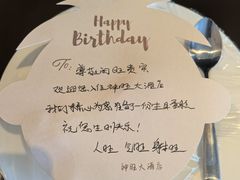 Happy
Birthday
To: 尊敬的旺贵宾
欢迎您入住神旺大酒店
我们精心为您准备了一份生日蛋糕
祝您生日快乐!
人旺 气旺 身体旺
神旺大酒店